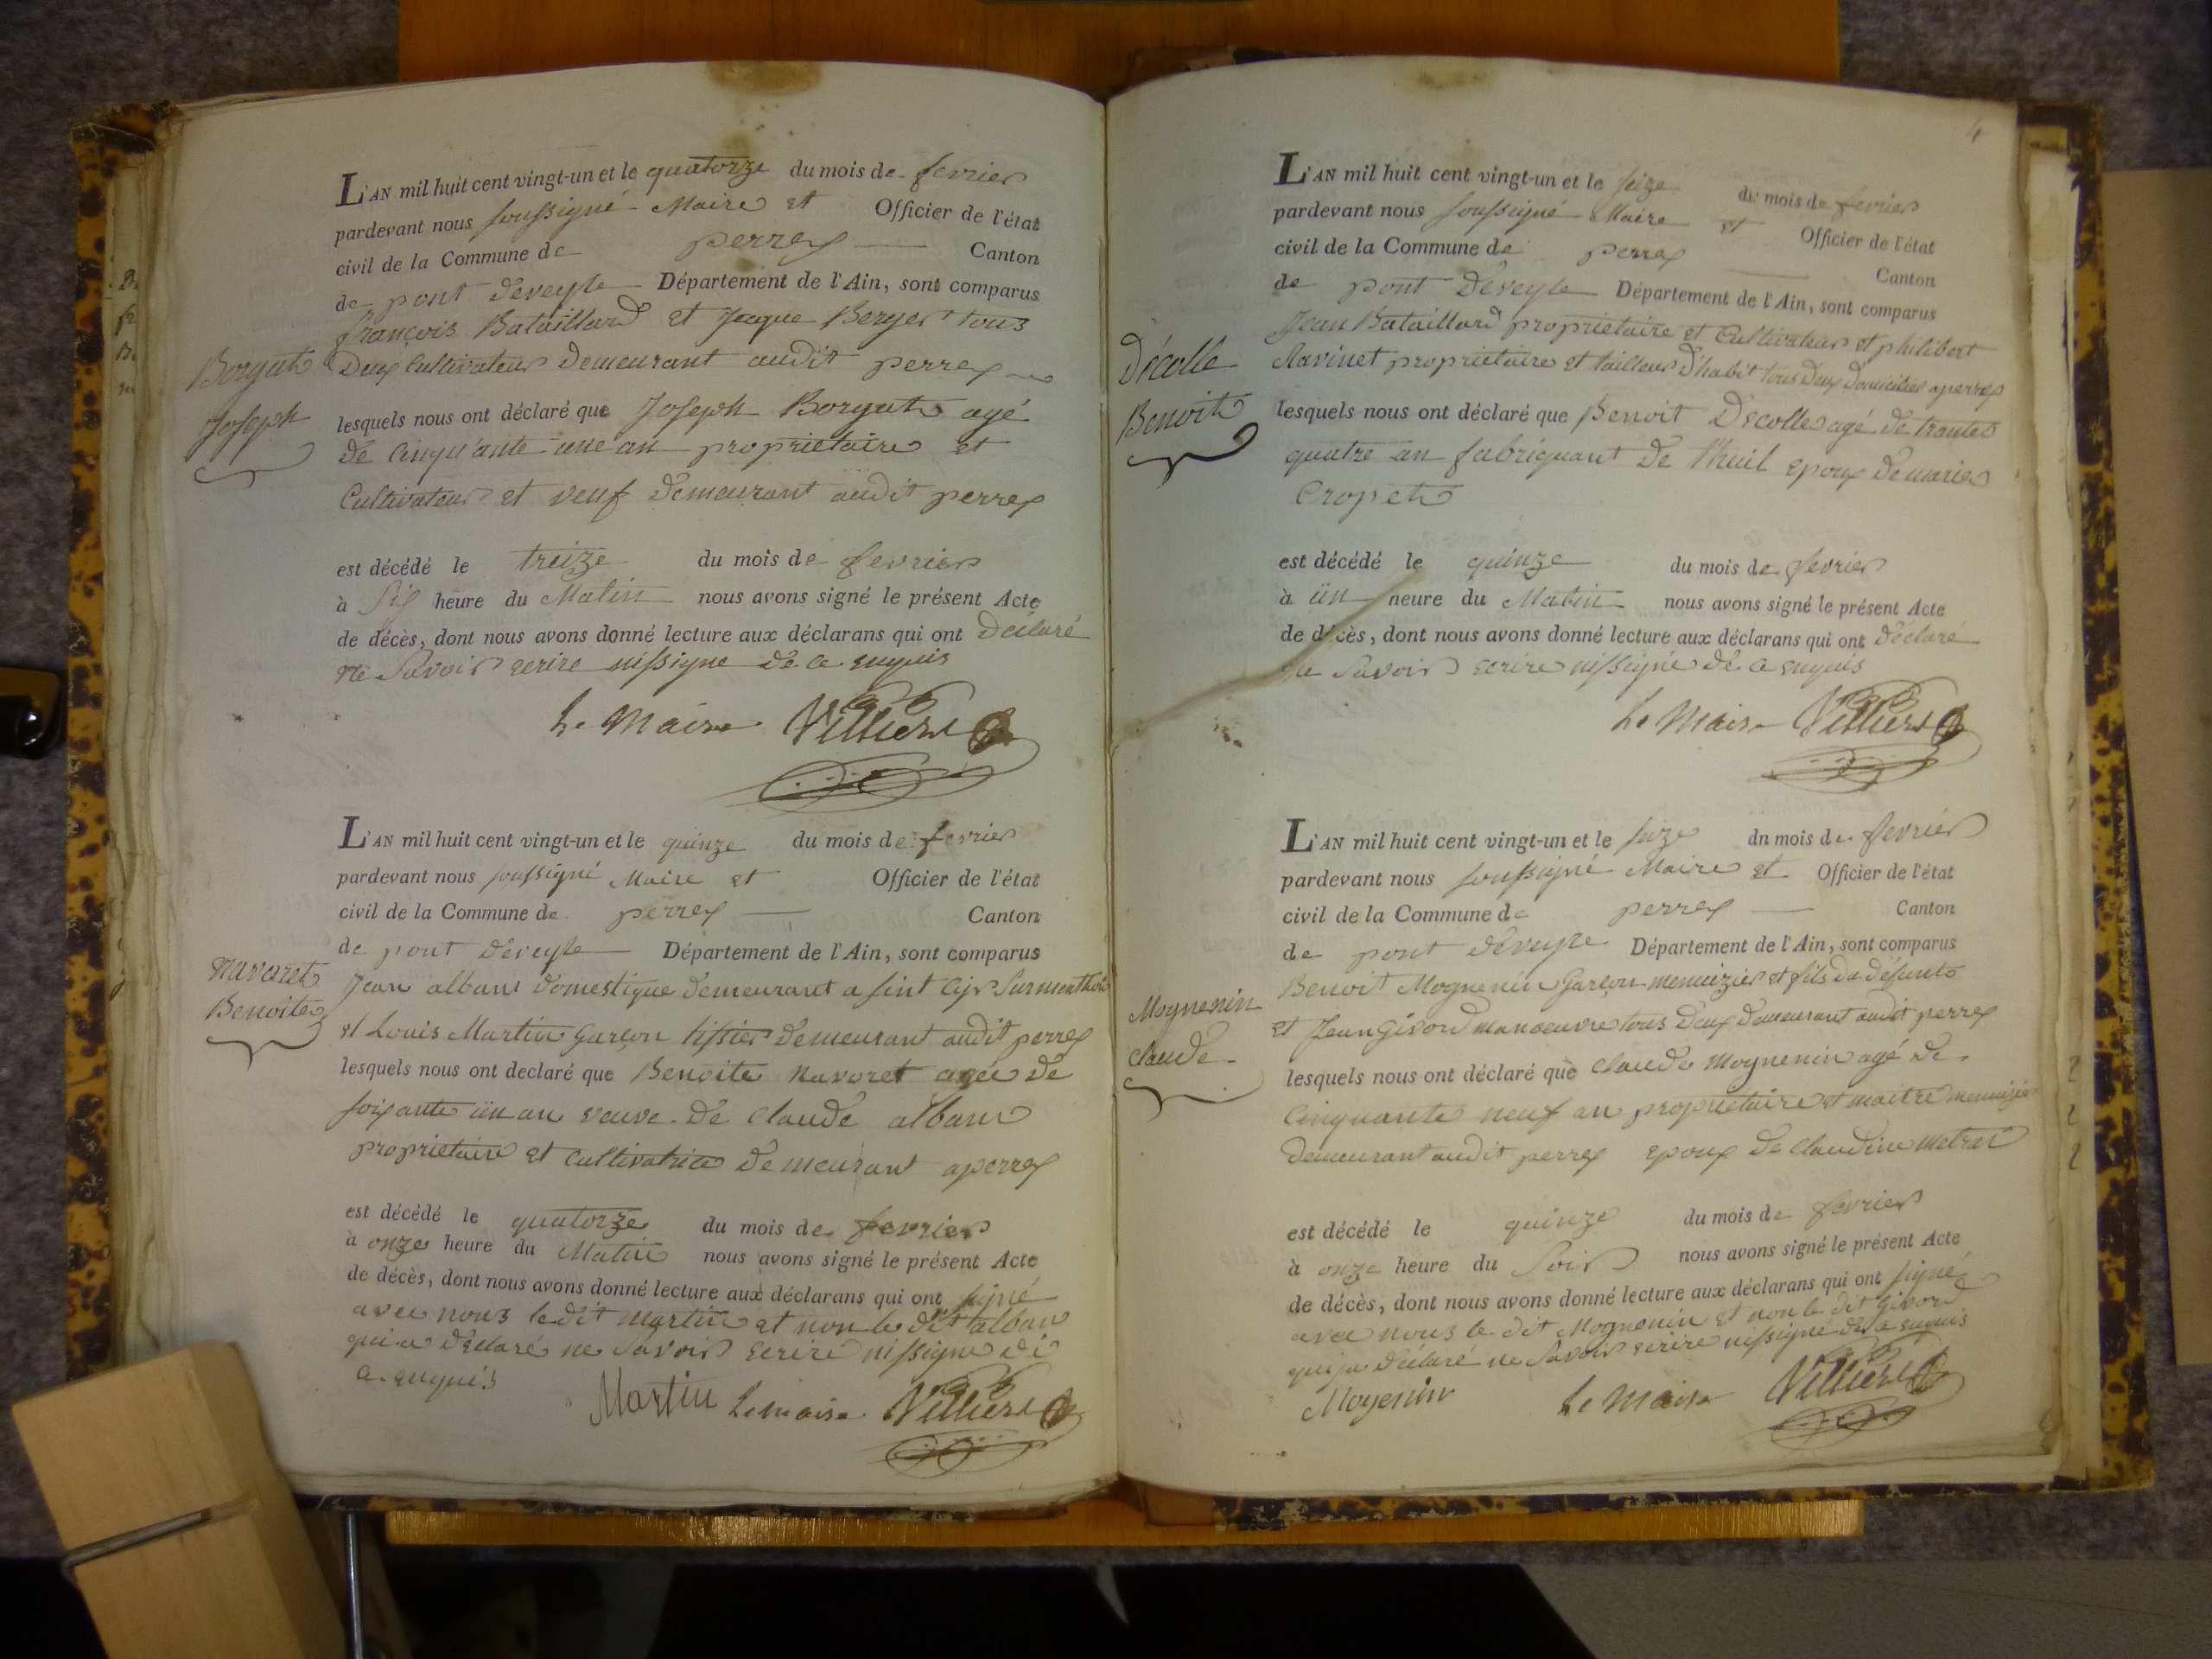 L'AN mil huit cent vingt-un et le quatorze du mois de fevrier
pardevant nous soussigné Maire et Officier de l'état
civil de la Commune de perrex Canton
de pont deveyle Département de l'Ain, sont comparus
françois Bataillard et Jaque Berger tous
Deux Cultivateur demeurant audit perrex
Borgat
Joseph
lesquels nous ont déclaré que Joseph Borgat agé
de Cinqu'ante une an proprietaire et
Cultivateur et veuf demeurant audit perrex
est décédé le treize du mois de fevrier
à six heure du Matin nous avons signé le présent Acte
de décès, dont nous avons donné lecture aux déclarans qui ont déclaré
ne Savoir ecrire nissigne de ce enquis
Le Maire Villiers
L'AN mil huit cent vingt-un et le quinze du mois de fevrier
pardevant nous soussigné Maire et Officier de l'état
civil de la Commune de perrex Canton
de pont deveyle Département de l'Ain, sont comparus
navaret
Benoite
Jean alban domestique demeurant a sint Cyr Surmenthon
et Louis Martin garçon tissier demeurant audit perrex
lesquels nous ont declaré que Benoite navoret agée de
soixante un an veuve de claude alban
proprietaire et cultivatrice demeurant aperrex
est décédé le quatorze du mois de fevrier
à onze heure du Matin nous avons signé le présent Acte
de décès, dont nous avons donné lecture aux déclarans qui ont signé
avec nous ledit martin et non le dit alban
qui a déclaré ne Savoir ecrire nissigne de
ce enquis
Martin Le maire Villiers
4
L'AN mil huit cent vingt-un et le seize du mois de fevrier
pardevant nous soussigné Maire et Officier de l'état
civil de la Commune de perrex Canton
de pont deveyle Département de l'Ain, sont comparus
Jean Bataillard proprietaire et Cultivateur et philibert
Ravinet proprietaire et tailleur d'habit tous deux domicilies aperrex
Décolle
Benoit
lesquels nous ont déclaré que Benoit Décolle agé de trante
quatre an fabriquant de thuil epoux de marie
Cropet
est décédé le quinze du mois de fevrier
à ün heure du Matin nous avons signé le présent Acte
de décès, dont nous avons donné lecture aux déclarans qui ont déclaré
ne Savoir ecrire nissigné de ce enquis
Le Maire Villiers
L'AN mil huit cent vingt-un et le seize dn mois de fevrier
pardevant nous soussigné Maire et Officier de l'état
civil de la Commune de perrex Canton
de pont deveyle Département de l'Ain, sont comparus
Mognenin
claude
Benoit Mognenin Garçon menuizier et fils du défunt
et Jean Givord manoeuvre tous deux demeurant audit perrex
lesquels nous ont déclaré que claude Mognenin agé de
Cinquante neuf an proprietaire et maitre menuizier
demeurant audit perrex epoux de claudine metras
est décédé le quinze du mois de fevrier
à onze heure du Soir nous avons signé le présent Acte
de décès, dont nous avons donné lecture aux déclarans qui ont signé
avec nous le dit Mognenin et non le dit Givord
qui ja déclaré ne Savoir ecrire nissigné de ce enquis
Mogenin Le Maire Villiers